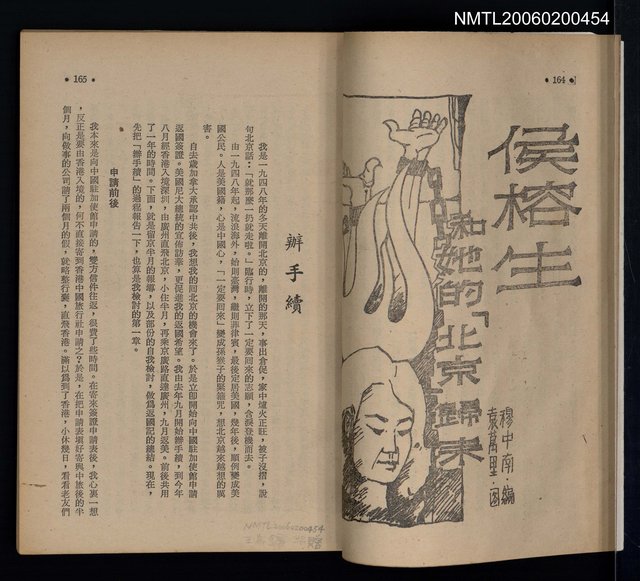 NMTL20060200454
164
侯榕生
和她的「北京歸來
穆中南·編
袁萬里·圖
165
辦手續
我是一九四八年的冬天離開北京的，離開的那天，事出倉促，家中爐火正旺，被子沒摺，說
句北京話：「就那麼一扔就走啦。」臨行時，立下了一定要回來的志願，含淚登機而去。
由一九四八年起，流浪海外，始則臺灣，繼則菲律賓，最後定居美國，幾年後，順例變成美
國公民。人是美國籍，心是中國心，「一定要回來」變成孫猴子的緊箍咒，想北京越來越想的厲
害。
自去歲加拿大承認中共後，我想我的回北京的機會來了。於是立即開始向中國駐加使館申請
返國簽證。美國尼大總統的宣佈訪華，更促進我的返國希望。我由去年九月開始辦手續，到今年
八月經香港入境深圳，由廣州直飛北京，小住半月，再乘京廣路直達廣州，九月返美。前後共用
了一年的時間。下面，就是留京半月的報導，以及部份的自我檢討，做為返國記的總結。現在，
先把「辦手續」的過程報告一下，也算是我檢討的第一章。
申請前後
我本來是向中國駐加使館申請的，雙方信件往返，很費了些時間。在寄來簽證申請表後，我心裏一想
，反正是要由香港入境的，何不直接寄到香港中國旅行社申請之？於是，在把申請表填好寄與中旅後的半
個月，向做事的公司請了兩個月的假，就略整行裝，直飛香港。滿以爲到了香港，小休幾日，看看老友們
NMTL20060200454